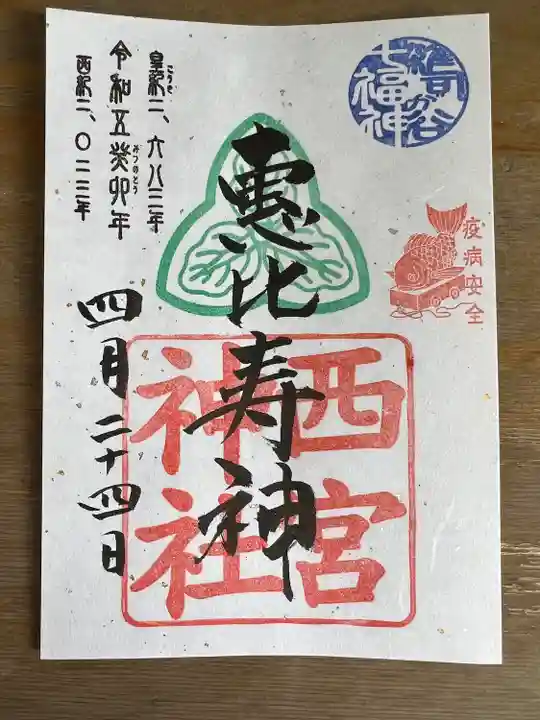 七福神
疫病安全
恵比寿神
西宮
神社
こうき
皇紀二、六八三年
みづのとう
令和五癸卯年
西紀二、〇二三年
四月二十四日